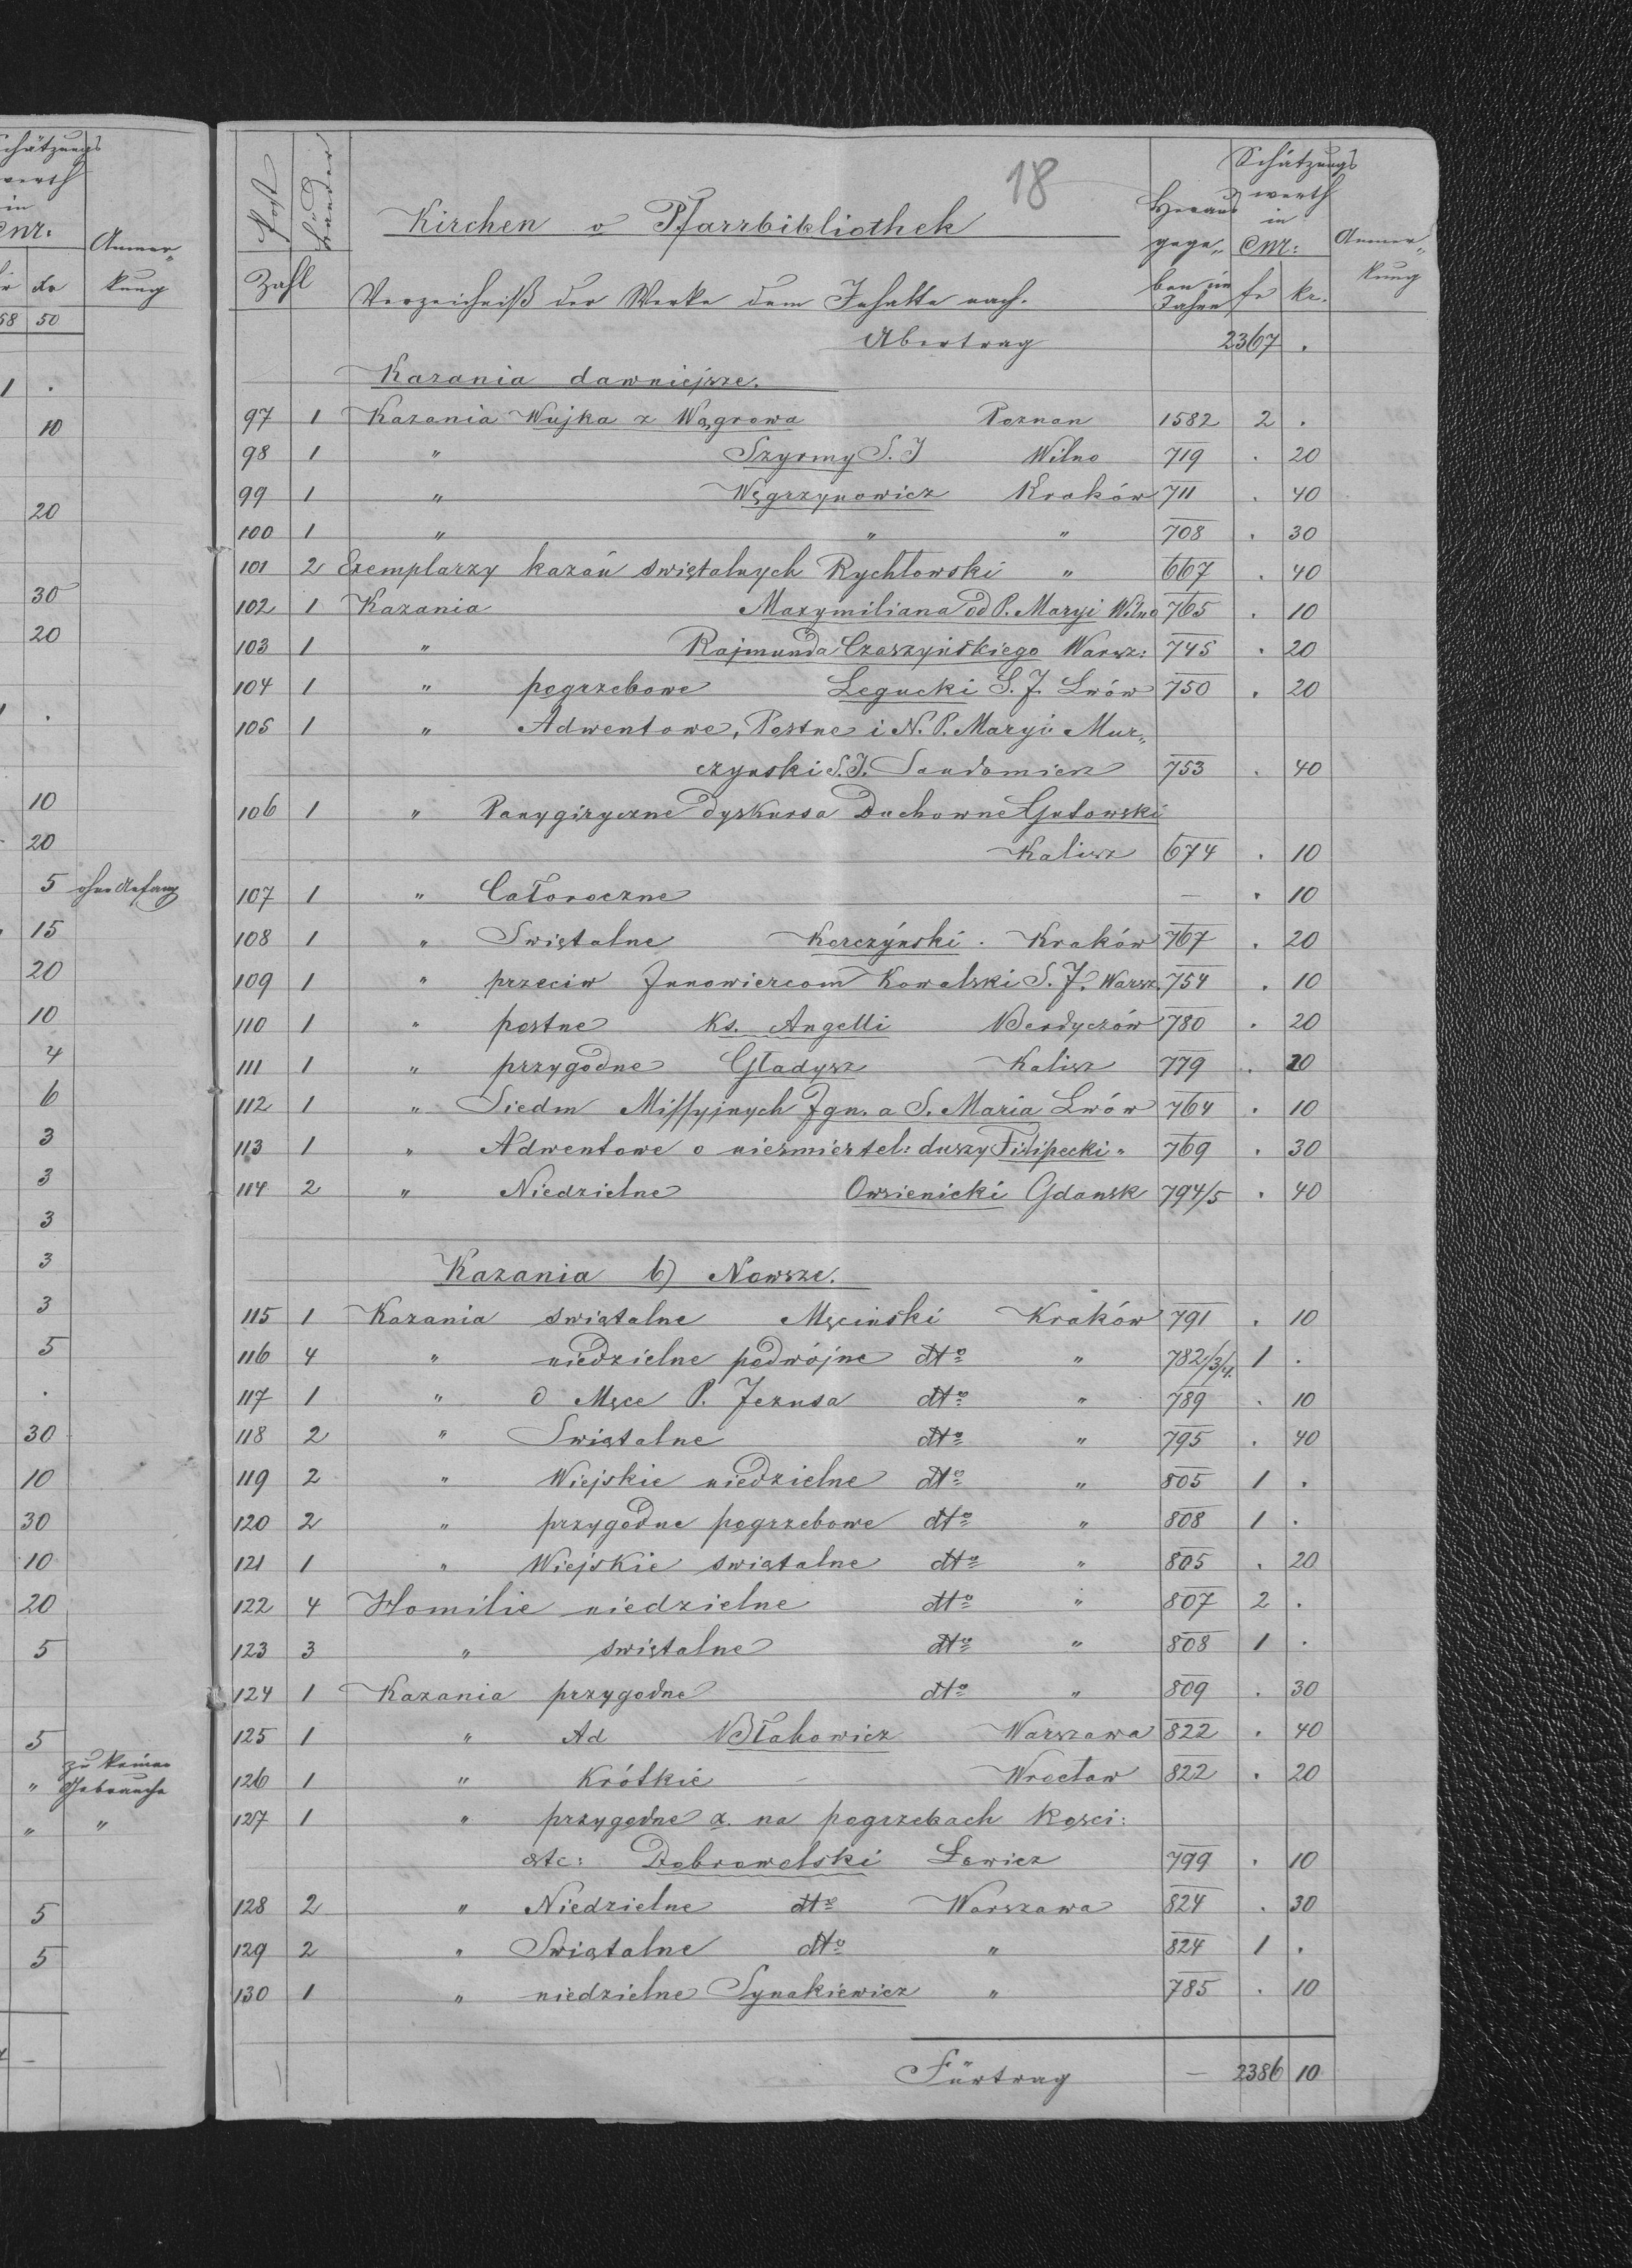 18
Kirchen o Pfarrbibliothek
Post Bänder
Zahl
Verzeichniß der Werke dem Inhalte nach.
Heraus
gege„
ben im
Jahre
Schätzungs
werth
in
CM:
fr kr.
Anmer„
kung
Übertrag 2367 .
Kazania dawniejsze.
97 1 Kazania Wujka z Wągrowa Poznan 1582 2 .
98 1 " Szyrmy S. J Wilno 719 . 20
99 1 " Węgrzynowicz Kraków 711 . 40
100 1 " " " 708 . 30
101 2 Exemplarzy kazań swiętalnych Rychłowski " 667 . 40
102 1 Kazania Maxymiliana od P. Maryi Wilno 765 . 10
103 1 " Rajmunda Czaszyńskiego Warsz: 745 . 20
104 1 " pogrzebowe Legucki S. J. Lwów 750 . 20
105 1 " Adwentowe, Postne i N. P. Maryi Mur„
czynski S. J. Sandomierz 753 . 40
106 1 " Panygiryczne dyskursa Duchowne Gutowski
Kalisz 674 . 10
107 1 " Całoroczne — . 10
108 1 " Swiętalne Korczýnski . Kraków 767 . 20
109 1 " przeciw Innowiercom Kowalski S. J. Warsz. 754 . 10
110 1 " postne Ks. Angelli Berdyczów 780 . 20
111 1 " przygodne Gładysz Kalisz 779 . 20
112 1 " Siedm Missyjnych Ign. a S. Maria Lwów 764 . 10
113 1 " Adwentowe o niesmiertel: duszy Filipecki " 769 . 30
114 2 " Niedzielne Owsienicki Gdansk 794/5 . 40
Kazania b) Nowsze.
115 1 Kazania swiątalne Męcinski Kraków 791 . 10
116 4 " niedzielne podwójne dto " 782/3/4. 1 .
117 1 " O Męce P. Jezusa dto " 789 . 10
118 2 " Swiątalne dto " 795 . 40
119 2 " Wiejskie niedzielne dto " 805 1 .
120 2 " przygodne pogrzebowe dto " 808 1 .
121 1 " Wiejskie swiątalne dto " 805 . 20
122 4 Homilie niedzielne dto " 807 2 .
123 3 " swiętalne dto " 808 1 .
124 1 Kazania przygodne dto " 809 . 30
125 1 " Ad Błahowicz Warszawa 822 . 40
126 1 " Krótkie - Wrocław 822 . 20
127 1 " przygodne z. na pogrzebach Kosci:
etc: Dobrowolski Łowicz 799 . 10
128 2 " Niedzielne dto Warszawa 824 . 30
129 2 " Swiątalne dto " 824 1 .
130 1 " niedzielne Synakiewicz " 785 . 10
Fürtrag — 2386 10